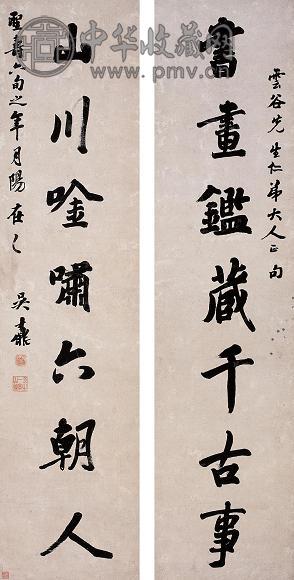 中华收藏网
www.pmv.cn
雲谷先生仁弟大人正句
書畫鑑藏千古事
山川唫嘯六朝人
聖壽六旬之年月陽在
吳鼒